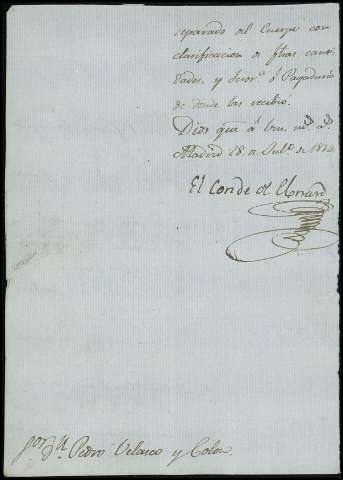 separado del Cuerpo con
clasificacion de dhas canti
dades, y Tesorª ó Pagaduria
de donde las recibió.
Dios gue á Vm. ms. as.
Madrid 28 de Julº de 1814.
El Conde de
Sor. Dn. Pedro Velasco y Colon.